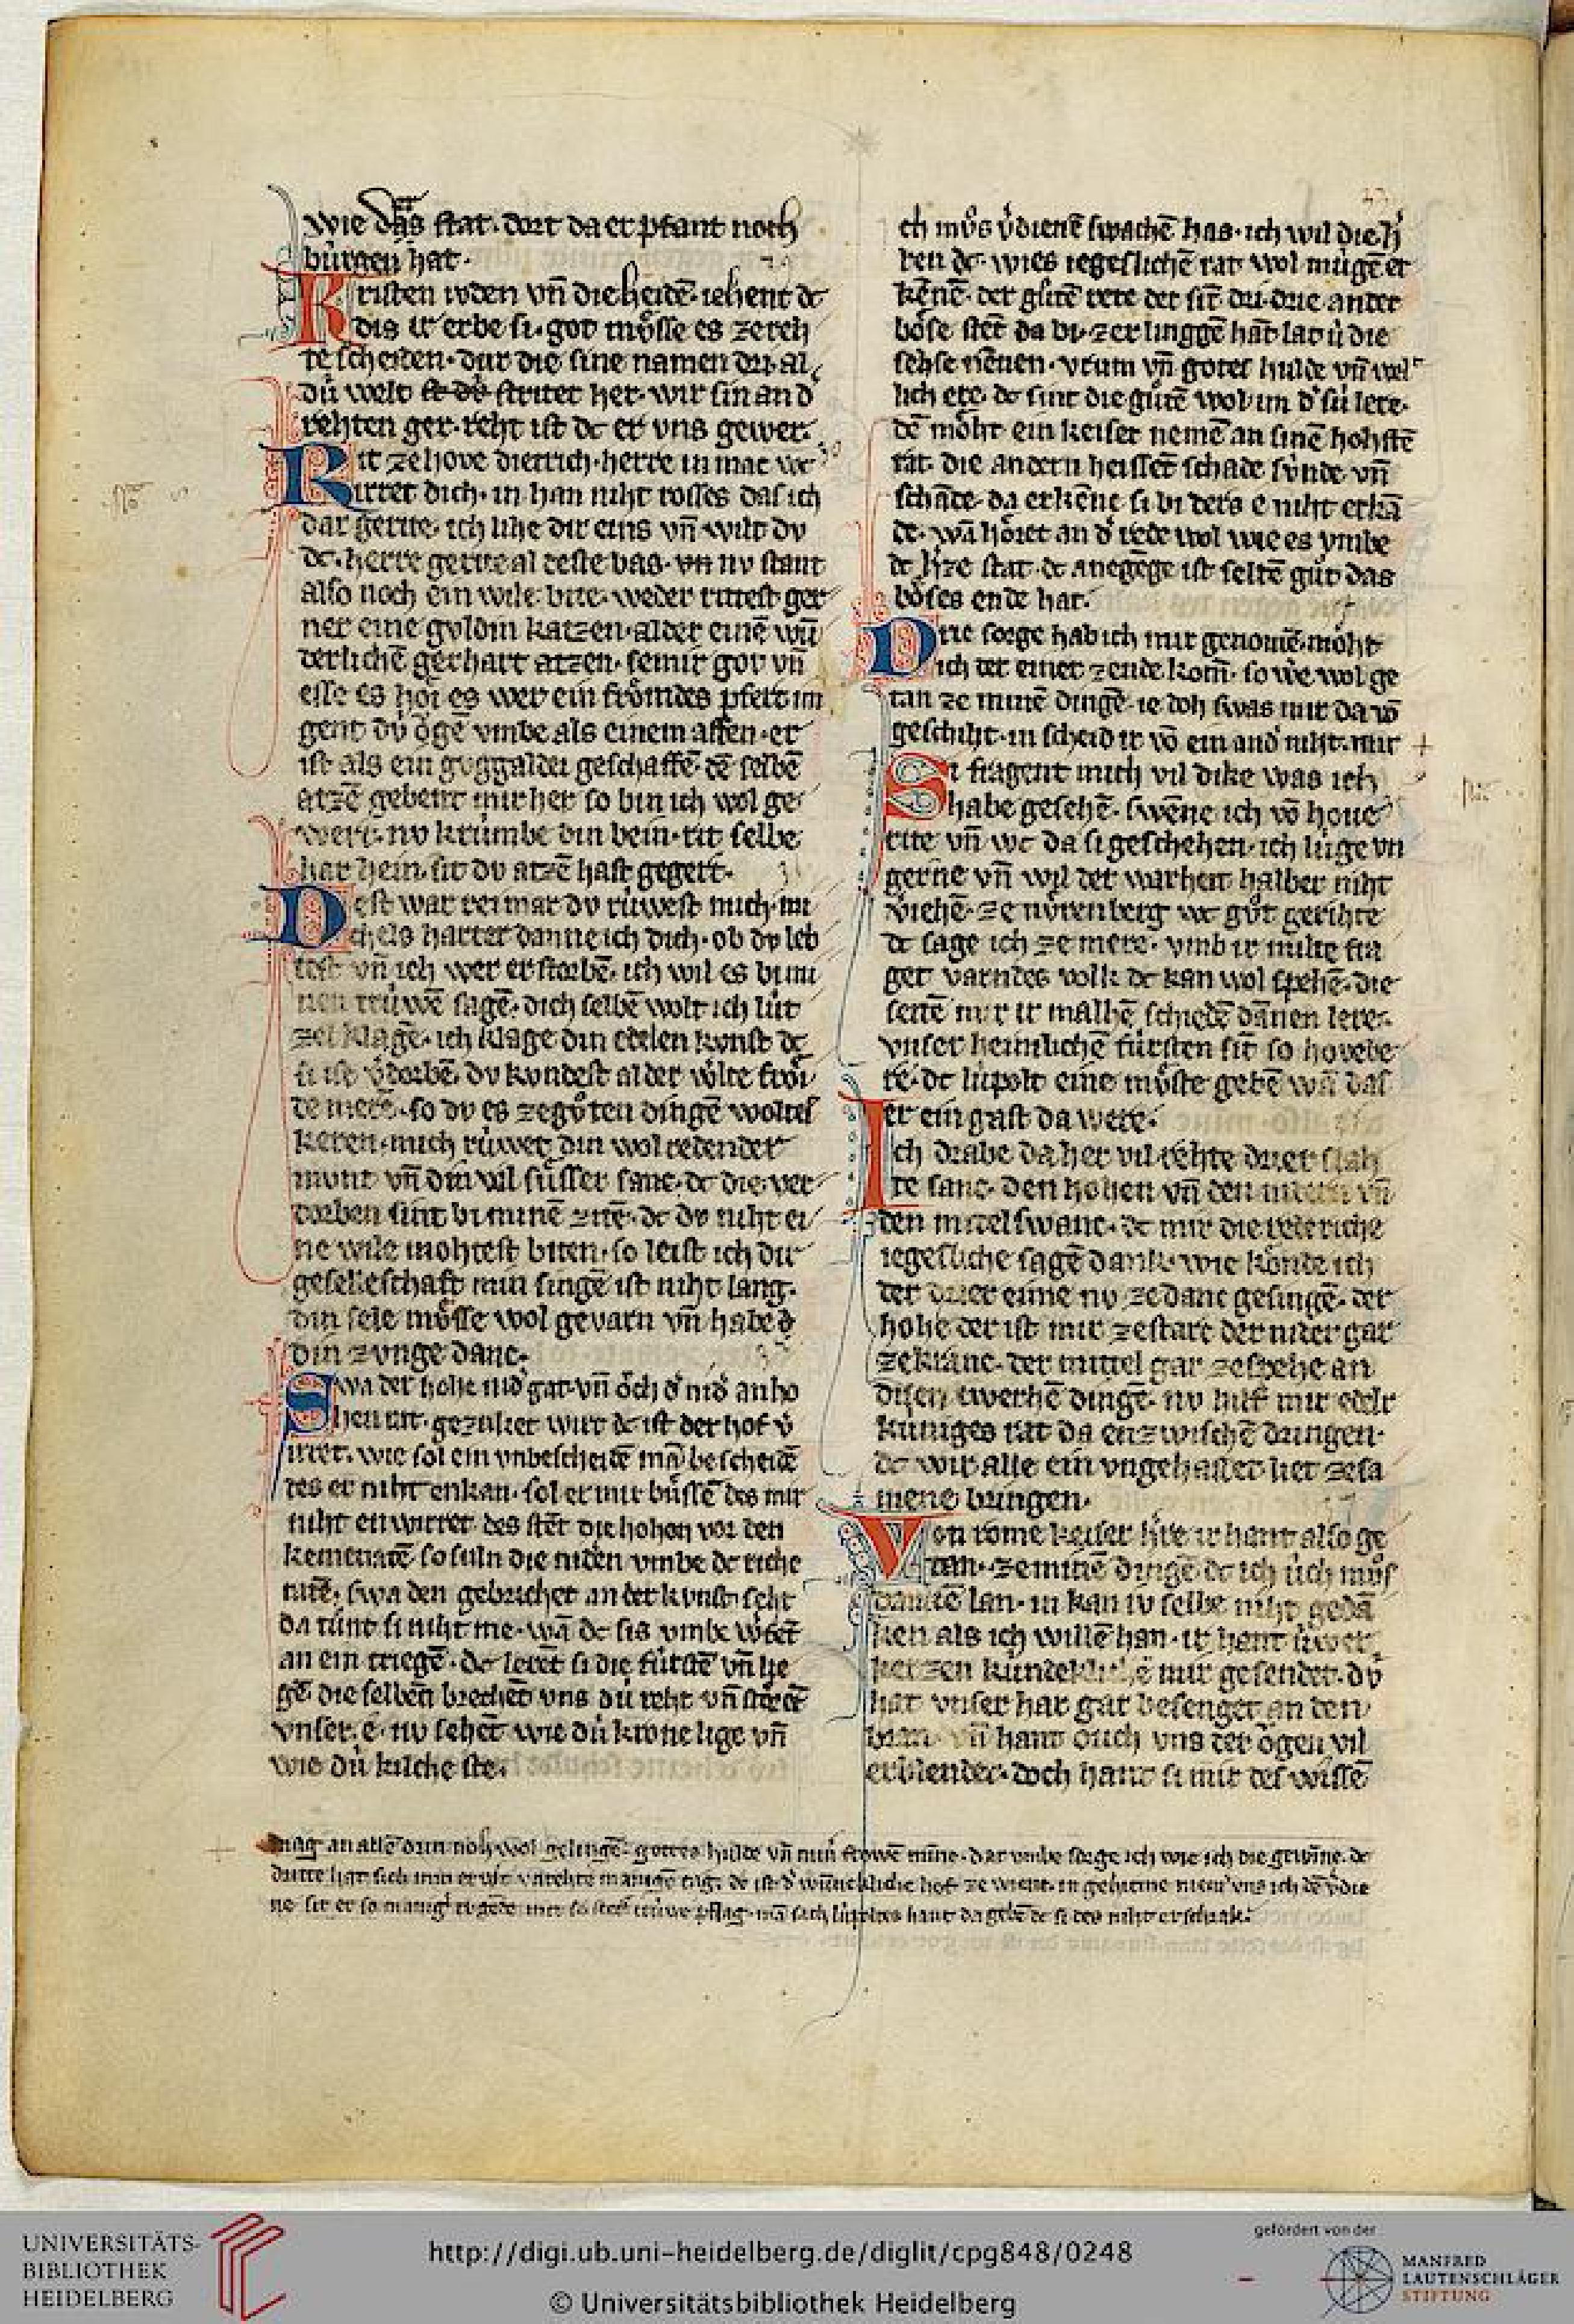 wie dãs stat. dort da er pfant noch
búrgen hat.
Kristen ivden vñ die heidē. iehent dc
dis ir erbe si. got mv̊sse es ze reh
te scheiden. dur die sine namen dri. al
dú welt stritet her. wir sin an d̾
rehten ger. reht ist dc er vns gewer.
Rit ze hove dietrich. herre in mac. wc
irret dich. in han niht rosses das ich
dar gerite. ich lihe dir eins vñ wilt dv
dc. herre gerite al deste bas. nv stant
also noch ein wile. bite. weder rittest ger
ner eine gvldin katzen. alder einē wū
derlichē gerhart atzen. semir got vñ
esse es hoi es wer ein frömdes pfert im
gent dú ögē vmbe als einem affen. er
ist als ein gvggaldei geschaffē. dē selbē
atzē gebent mir her so bin ich wol ge
wert. nv krúmbe din bein. rit selbe
har hein. sit dv atzē hast gegert.
Dest war reimar dv rúwest mich. mi
chels harter danne ich dich. ob dv leb
test vñ ich wer erstorbē. ich wil es bi mi
nen trúwē sagē. dich selbē wolt ich lút
zel klagē. ich klage din edelen kvnst dc
si ist v̾dorbē. dv kvndest al der wlte fröi
de merē. so dv es ze gv̊ten dingē woltes
keren. mich rúwet din wol redender
mvnt vñ din vil sússer sanc. dc die ver
dorben sint bi minē zitē. dc dv niht ei
ne wile mohtest biten. so leist ich dir
geselleschaft min singē ist niht lang.
din sele mv̊sse wol gevarn vñ habe d̾
din zvnge danc.
Swa der hohe nid̾ gat. vñ öch d̾ nid̾ an ho
hen rat. gezuket wirt dc ist der hof v̾
irret. wie sol ein vnbescheidē mā bescheidē
des er niht enkan. sol er mir bússē des mir
niht enwirret. des stēt die hohon vor den
kemenatē. so suln die nidēn vmbe dc riche
ratē. swa den gebrichet an der kvnst. seht
da tůnt si niht me. wā dc sis vmbe w̾fēt
an ein triegē. dc lerēt si die fúrstē vñ lie
gē die selben brechēt vns dú reht vñ störēt
vnser. e. nv sehēt wie dú krone lige vñ
wie dú kilche ste.
ch mv̊s v̾dienē swachē has. ich wil die h̾
ren dc. wies iegeslichē rat wol mugē er
kēnē. der gůtē rete der sīt dri. drie ander
böse stēt da bi. zer linggē hāt. lat ú die
sehse nēnen. vrum vñ gotes hulde vñ welt
lich ere. dc sint die gůtē wol im d̾ sú lere.
dē möht ein keiser nemē an sinē hohstē
rat. die andern heissēt schade súnde vñ
schāde. da erkēne si bi ders e niht erkā
de. wā höret an d̾ rede wol wie es vmbe
dc h̾ze stat. dc anegēge ist seltē gůt das
böses ende hat.
Drie sorge hab ich mir genomē. möht
ich der einer zende kom̄. so we wol ge
tan ze minē dingē. ie doh swas mir da vō
geschiht. in scheid ir vō ein and̾ niht. mir +
Si fragent mich vil dike was ich
habe gesehē. swēne ich vō houe
rite vñ wc da si geschehen. ich lúge vn
gerne vñ wil der warheit halber niht
v̾iehē. ze nv̊renberg wc gůt gerihte
dc sage ich ze mere. vmb ir milte fra
get varndes volk. dc kan wol spehē. die
seitē mir ir malhē schiedē dānen lere.
vnser heimlichē fúrsten sīt so hovebe
re. dc lúpolt eine mv̊ste gebē wā das
er ein gast da were.
Ich drabe da her vil rehte drier slah
te sanc. den hohen vñ den nidern vñ
den mittelswanc. dc mir die rederiche
iegesliche sagē dank. wie könde ich
der drier eime nv ze danc gesingē. der
hohe der ist mir ze starc der nider gar
ze kranc. der mittel gar ze spehe an
disen twerhē dingē. nv hilf mir edelr
kúniges rat da enzwischē dringen.
dc wir alle ein vngehasset liet zesa
mene bringen.
Von rome keiser h̾re ir hant also ge
tan. ze minē dingē dc ich úch mv̊s
danken lan. in kan iv selbe niht gedā
ken als ich willē han. ir hant úwer
kerzen kúndeklichē mir gesendet. dv
hat vnser har gar besenget an den
bran. vñ hant ouch vns der ögen vil
erblendet. doch hant si mir des wissē
mag an allē drin noh wol gelingē. gottes hulde vñ miner frowē mīne. dar vmbe sorge ich wie ich die gewīne. dc
dritte hat sich min erwert vnrehte manigē tag. dc ist d̾ wūnekliche hof ze wiene. in gehirme niem̄ vns ich dē v̾die
ne. sit er so manig̾ tvgēde mit so stet̾ trúwe pflag. mā sach lúpoltes hant da gebē dc si des niht erschrak.
UNIVERSITÄTS-
BIBLIOTHEK
HEIDELBERG
http://digi.ub.uni-heidelberg.de/diglit/cpg848/0248
© Universitätsbibliothek Heidelberg
gefördert von der
MANFRED
LAUTENSCHLÄGER
STIFTUNG